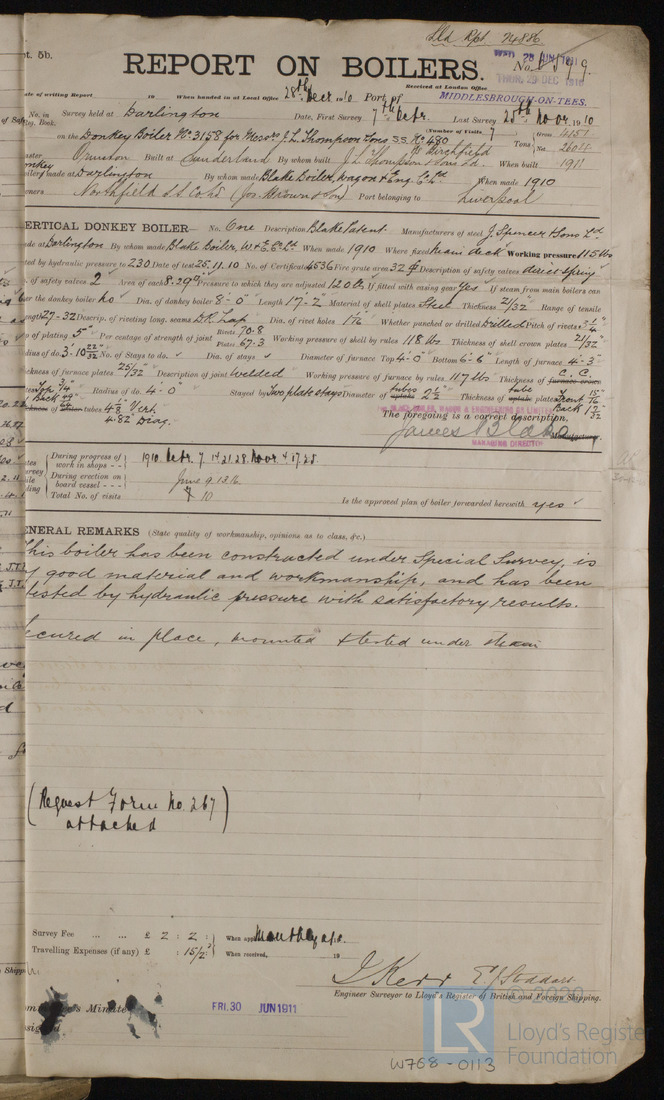 Lld Rpt. 74886
pt. 5b.
REPORT ON BOILERS.
No.
WED. 28 JUN 1911
THUR. 29 DEC. 1910
Received at London Office
Date of writing Report 19 When handed in at Local Office 28th Decr 1910 Port of MIDDLESBROUGH-ON-TEES.
No. in Survey held at Darlington Date, First Survey 7th Octr. Last Survey 25th Novr. 1910
Reg. Book.
(Number of Visits 7
on the Donkey Boiler No. 3158 for Messrs J. L. Thompson & Sons S.S. No. 480
Tons Gross 4151
Net 2604
Master Built at Sunderland By whom built J. L. Thompson & Sons Ld. When built 1911
Donkey Boiler made at Darlington By whom made Blake Boiler, Wagon & Eng. Co. Ld. When made 1910
Owners Northfield S.S. Co. Ld Port belonging to Liverpool
VERTICAL DONKEY BOILER— No. One Description Blake Patent Manufacturers of steel J. Spencer & Sons Ld.
Made at Darlington By whom made Blake Boiler, W. & E. Co. Ld. When made 1910 Where fixed Main deck Working pressure 115 lbs
tested by hydraulic pressure to 230 Date of test 25.11.10 No. of Certificate 4536 Fire grate area 32 Description of safety valves direct spring
of safety valves 2 Area of each 8.29 Pressure to which they are adjusted 120 lbs If fitted with easing gear Yes If steam from main boilers can
enter the donkey boiler no Dia. of donkey boiler 8-0" Length 17-2" Material of shell plates Steel Thickness 21/32" Range of tensile
strength 27-32 Descrip. of riveting long. seams D.R. Lap Dia. of rivet holes 1 1/16" Whether punched or drilled Drilled Pitch of rivets 3 3/4"
Lap of plating 5" Per centage of strength of joint Rivets 70.8 Plates 67.3 Working pressure of shell by rules 118 lbs Thickness of shell crown plates 21/32"
Radius of do. 3-10 22/32 No. of Stays to do. Dia. of stays Diameter of furnace Top 4-0" Bottom 6-6" Length of furnace 4-3"
Thickness of furnace plates 25/32" Description of joint welded Working pressure of furnace by rules 117 lbs Thickness of furnace crown C. C.
plates Top 3/4" Back Radius of do. 4-0" Stayed by Two plate stays Diameter of uptake tubes 2 1/2" Thickness of uptake tube plates Front 15/16 Back 17/32
Thickness of water tubes 4 1/8" Vert. 4.82" Diag.
THE BLAKE BOILER, WAGON & ENGINEERING CO. LIMITED
The foregoing is a correct description,
James Blake Manufacturer.
MANAGING DIRECTOR
Dates of Survey while building
During progress of work in shops - - 1910. Octr. 7. 14. 21. 28. Novr. 4. 17. 25.
During erection on board vessel - - - June 9. 13. 16.
Total No. of visits 10
Is the approved plan of boiler forwarded herewith yes
GENERAL REMARKS (State quality of workmanship, opinions as to class, &c.)
This boiler has been constructed under Special Survey, is
of good material and workmanship, and has been
tested by hydraulic pressure with satisfactory results.
Secured in place, mounted & tested under steam
(Request Form No. 267)
attached
Survey Fee ... ... £ 2 : 2 : When applied for, Monthly a/c.
Travelling Expenses (if any) £ : 15/2 : When received, 19
J. Kerr E. J. Stoddart
Engineer Surveyor to Lloyd's Register of British and Foreign Shipping.
Committee's Minute
FRI. 30 JUN 1911
Assigned
© 2020
LR
Lloyd's Register
Foundation
W768-0113